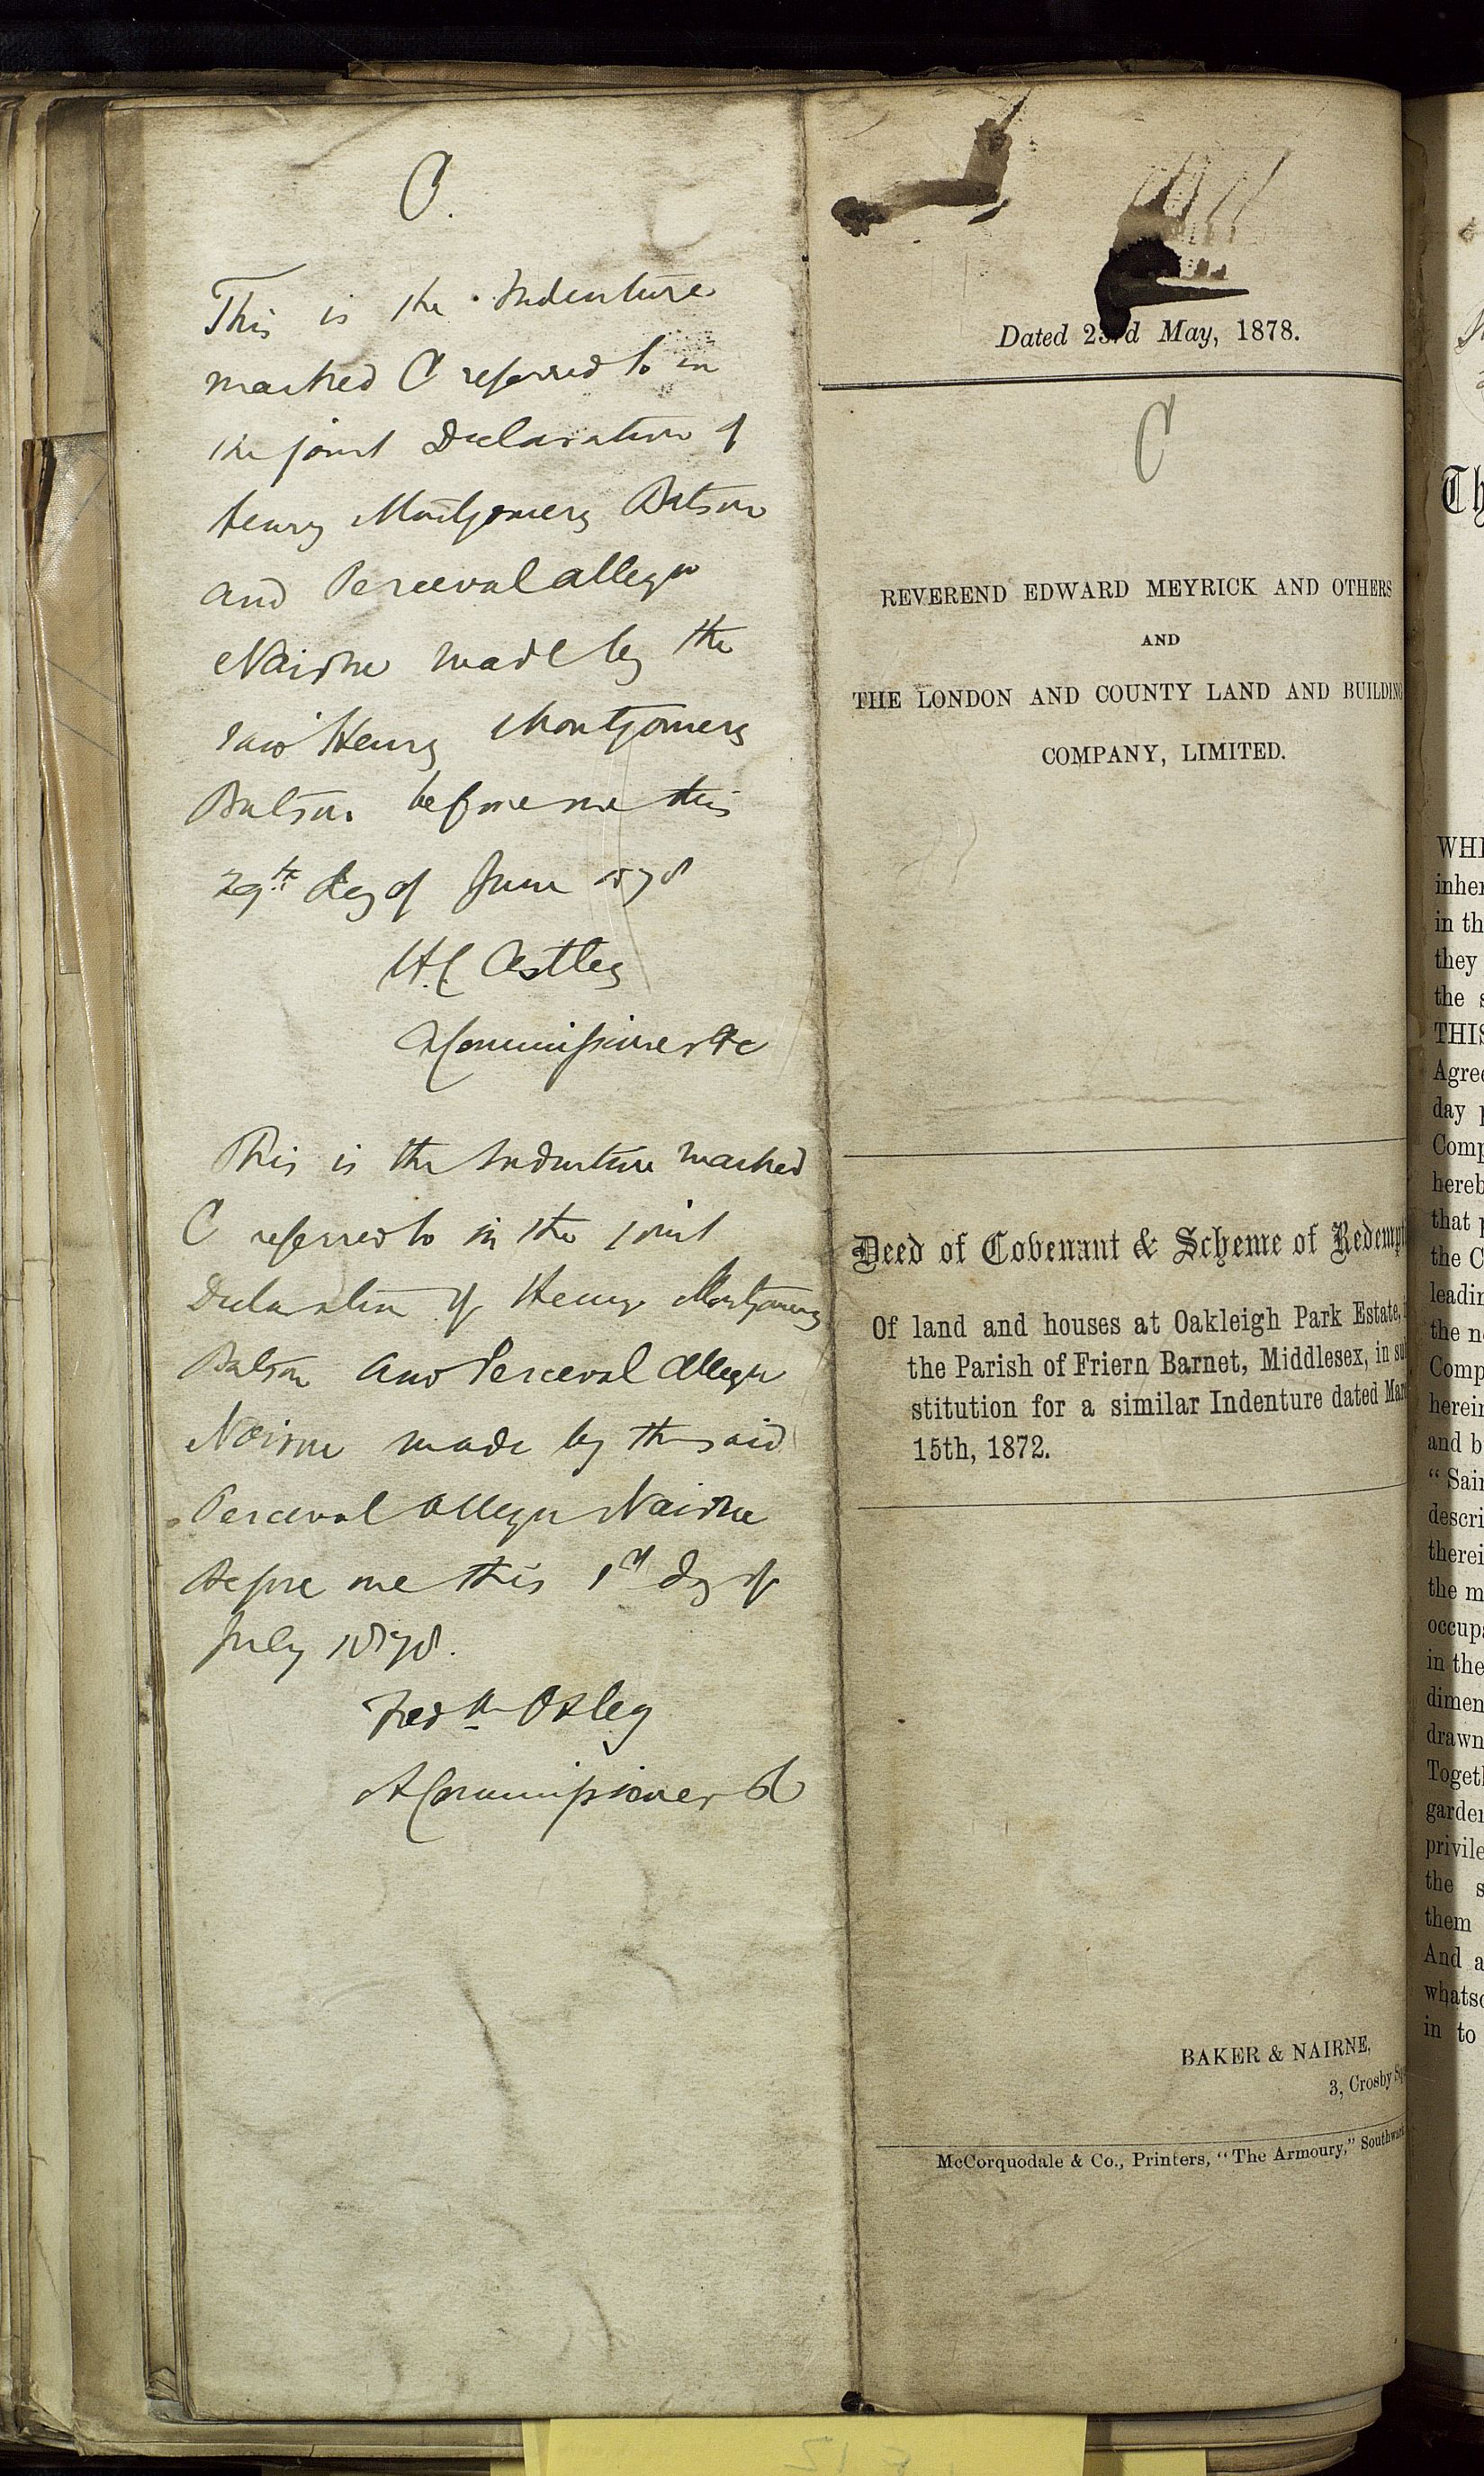 C.
This is the Indenture
marked C referred to in
the joint Declaration of
Henry Montgomery Batson
and Perceval Alleyn
Nairne made by the
said Henry Montgomery
Batson before me this
29th day of June 1878
H.C. Astley
A Commissioner &c
This is the Indenture marked
C referred to in the joint
Declaration of Henry Montgomery
Batson and Perceval Alleyn
Nairne made by the said
Perceval Alleyn Nairne
Before me this 1st day of
July 1878.
Fredk Oxley
A Commissioner &c
Dated 23rd May, 1878.
C
REVEREND EDWARD MEYRICK AND OTHERS
AND
THE LONDON AND COUNTY LAND AND BUILDING
COMPANY, LIMITED.
Deed of Covenant & Scheme of Redempt
Of land and houses at Oakleigh Park Estate,
the Parish of Friern Barnet, Middlesex, in su
stitution for a similar Indenture dated Mar
15th, 1872.
BAKER & NAIRNE,
3, Crosby Sq
McCorquodale & Co., Printers, "The Armoury," Southwark
Th
WHE
inher
in th
they
the s
THIS
Agree
day p
Comp
hereb
that p
the C
leadin
the n
Comp
herein
and b
"Sain
descri
therei
the m
occupa
in the
dimen
drawn
Togeth
garden
privile
the s
them
And a
whatso
in to